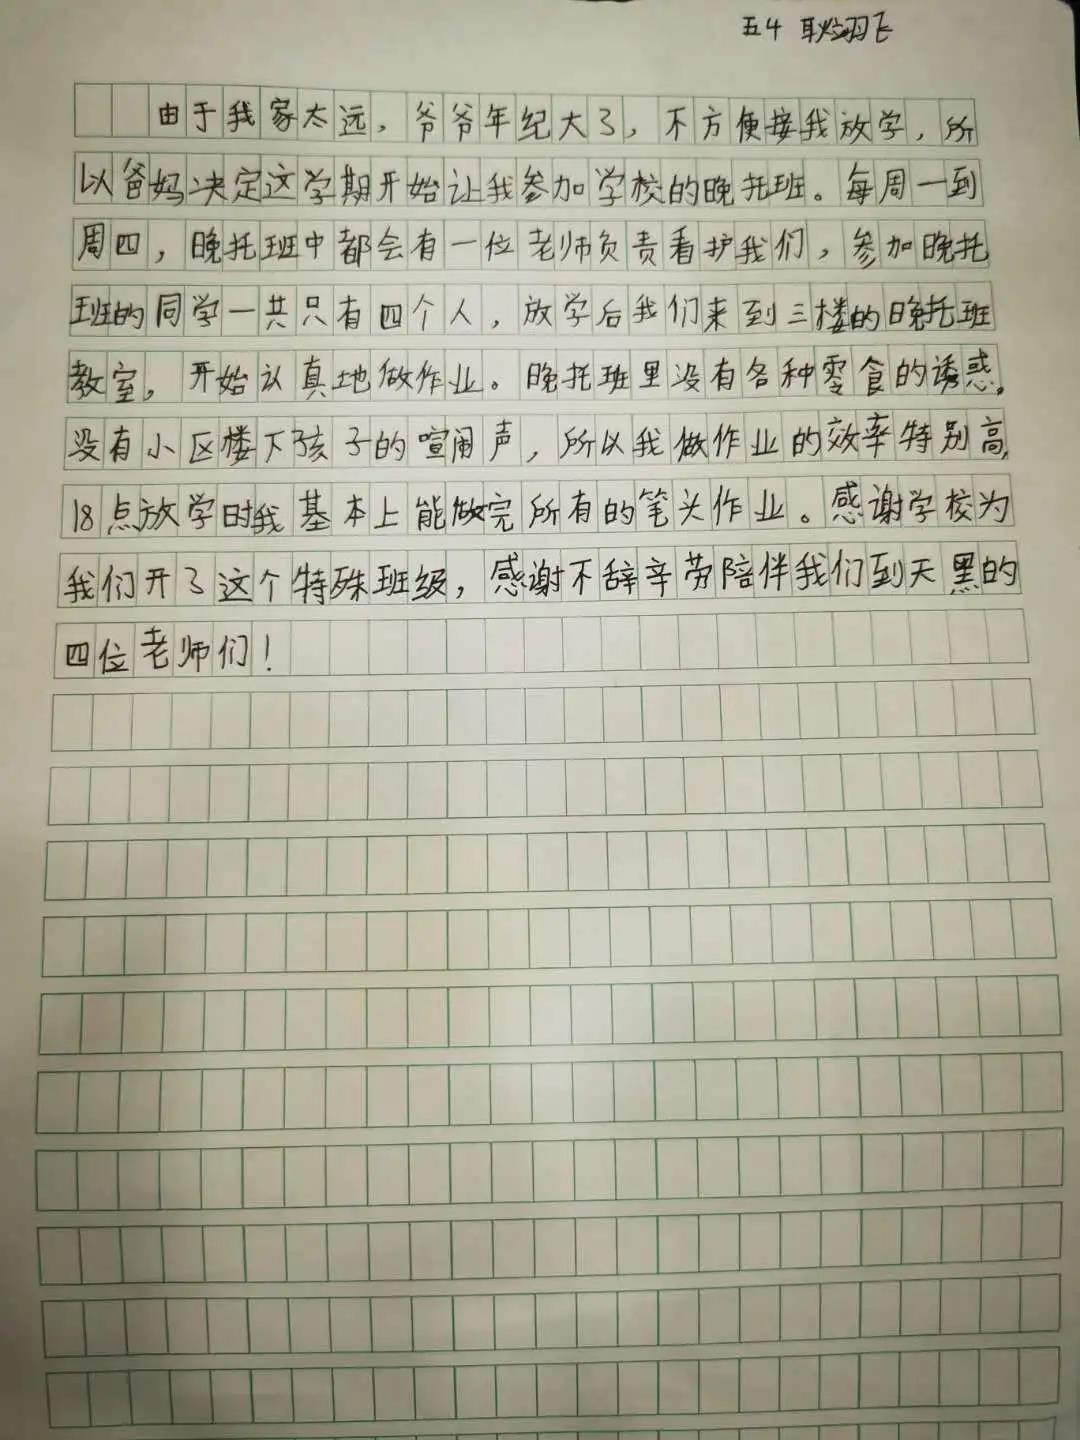 五4 耿翊飞
由于我家太远,爷爷年纪大了,不方便接我放学,所
以爸妈决定这学期开始让我参加学校的晚托班。每周一到
周四,晚托班中都会有一位老师负责看护我们,参加晚托
班的同学一共只有四个人,放学后我们来到三楼的晚托班
教室,开始认真地做作业。晚托班里没有各种零食的诱惑,
没有小区楼下孩子的喧闹声,所以我做作业的效率特别高,
18点放学时我基本上能做完所有的笔头作业。感谢学校为
我们开了这个特殊班级,感谢不辞辛劳陪伴我们到天黑的
四位老师们!